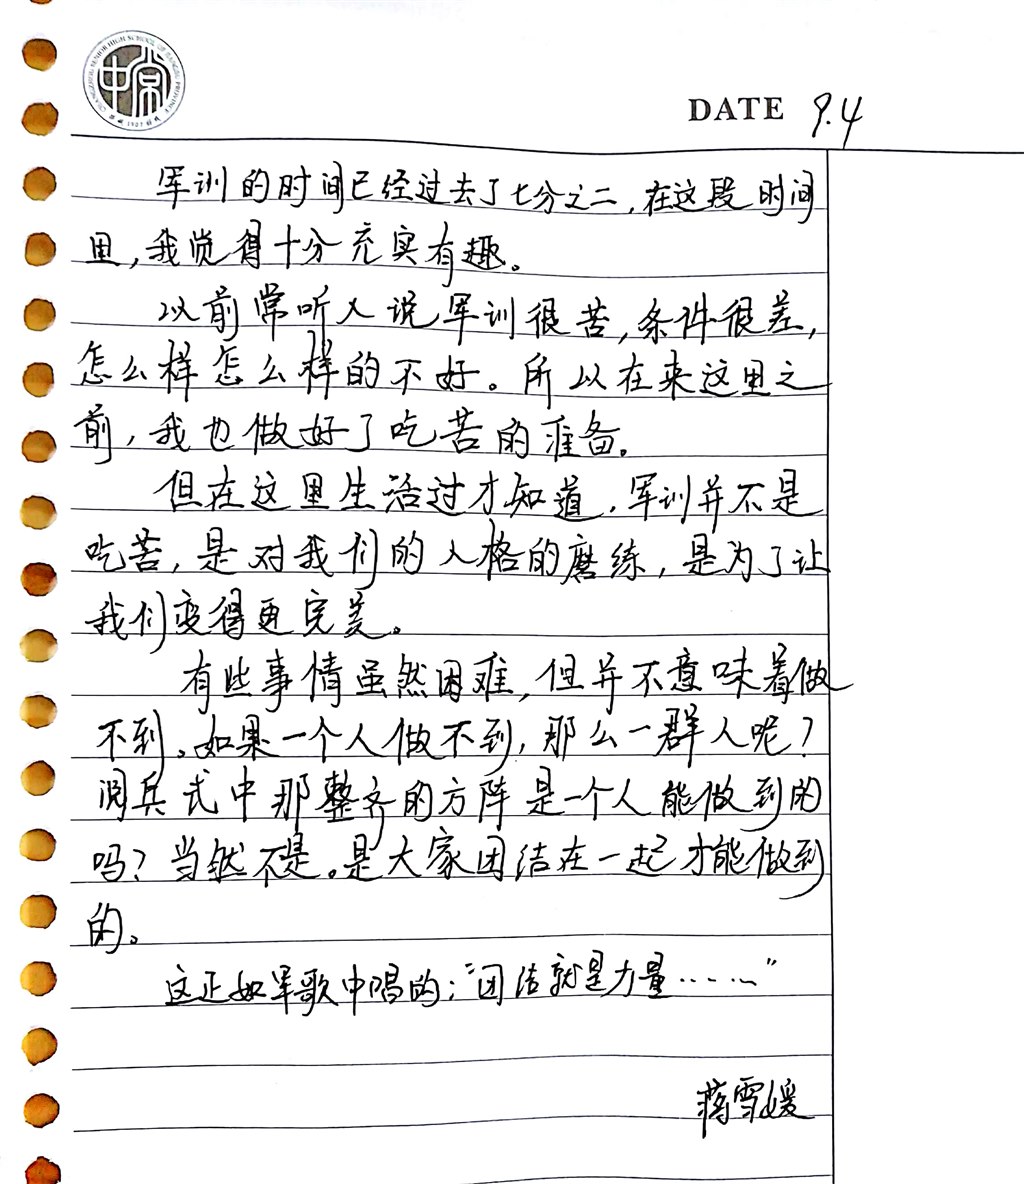 CHANGZHOU SENIOR HIGH SCHOOL OF JIANGSU PROVINCE
DATE 9.4
军训的时间已经过去了七分之二，在这段时间
里，我觉得十分充实有趣。
以前常听人说军训很苦，条件很差，
怎么样怎么样的不好。所以在来这里之
前，我也做好了吃苦的准备。
但在这里生活过才知道，军训并不是
吃苦，是对我们的人格的磨练，是为了让
我们变得更完美。
有些事情虽然困难，但并不意味着做
不到。如果一个人做不到，那么一群人呢？
阅兵式中那整齐的方阵是一个人能做到的
吗？当然不是。是大家团结在一起才能做到
的。
这正如军歌中唱的：“团结就是力量……”
蒋雪媛